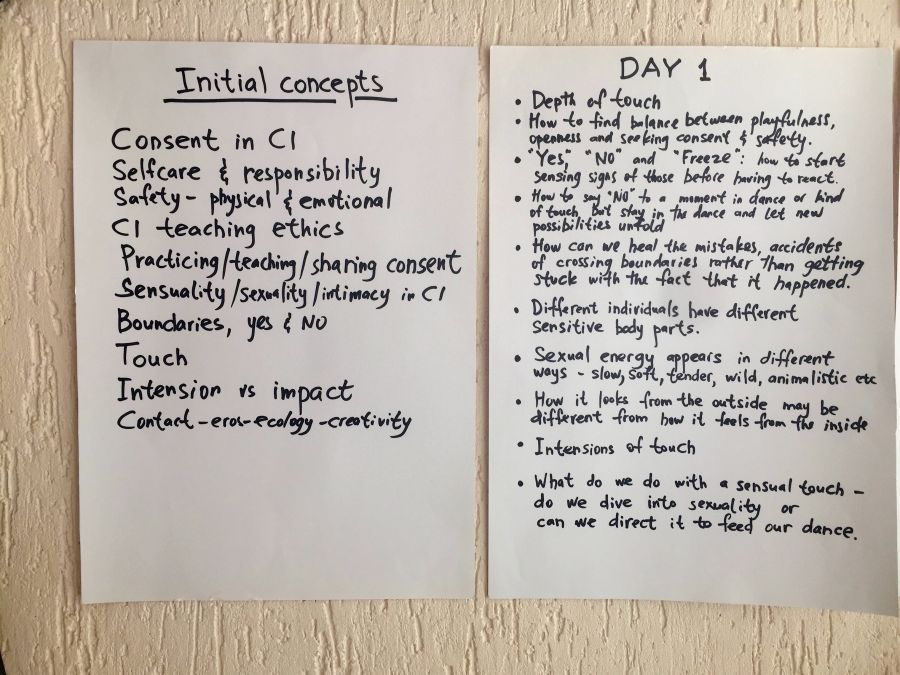 Initial concepts
Consent in CI
Selfcare & responsibility
Safety - physical & emotional
CI teaching ethics
Practicing/teaching/sharing consent
Sensuality/sexuality/intimacy in CI
Boundaries, yes & NO
Touch
Intension vs impact
Contact-eros-ecology-creativity
DAY 1
• Depth of touch
• How to find balance between playfulness,
openness and seeking consent & safety.
• "Yes," "NO" and "Freeze": how to start
sensing signs of those before having to react.
• How to say "NO" to a moment in dance or kind
of touch, but stay in the dance and let new
possibilities unfold
• How can we heal the mistakes, accidents
of crossing boundaries rather than getting
stuck with the fact that it happened.
• Different individuals have different
sensitive body parts.
• Sexual energy appears in different
ways - slow, soft, tender, wild, animalistic etc
• How it looks from the outside may be
different from how it feels from the inside
• Intensions of touch
• What do we do with a sensual touch -
do we dive into sexuality or
can we direct it to feed our dance.